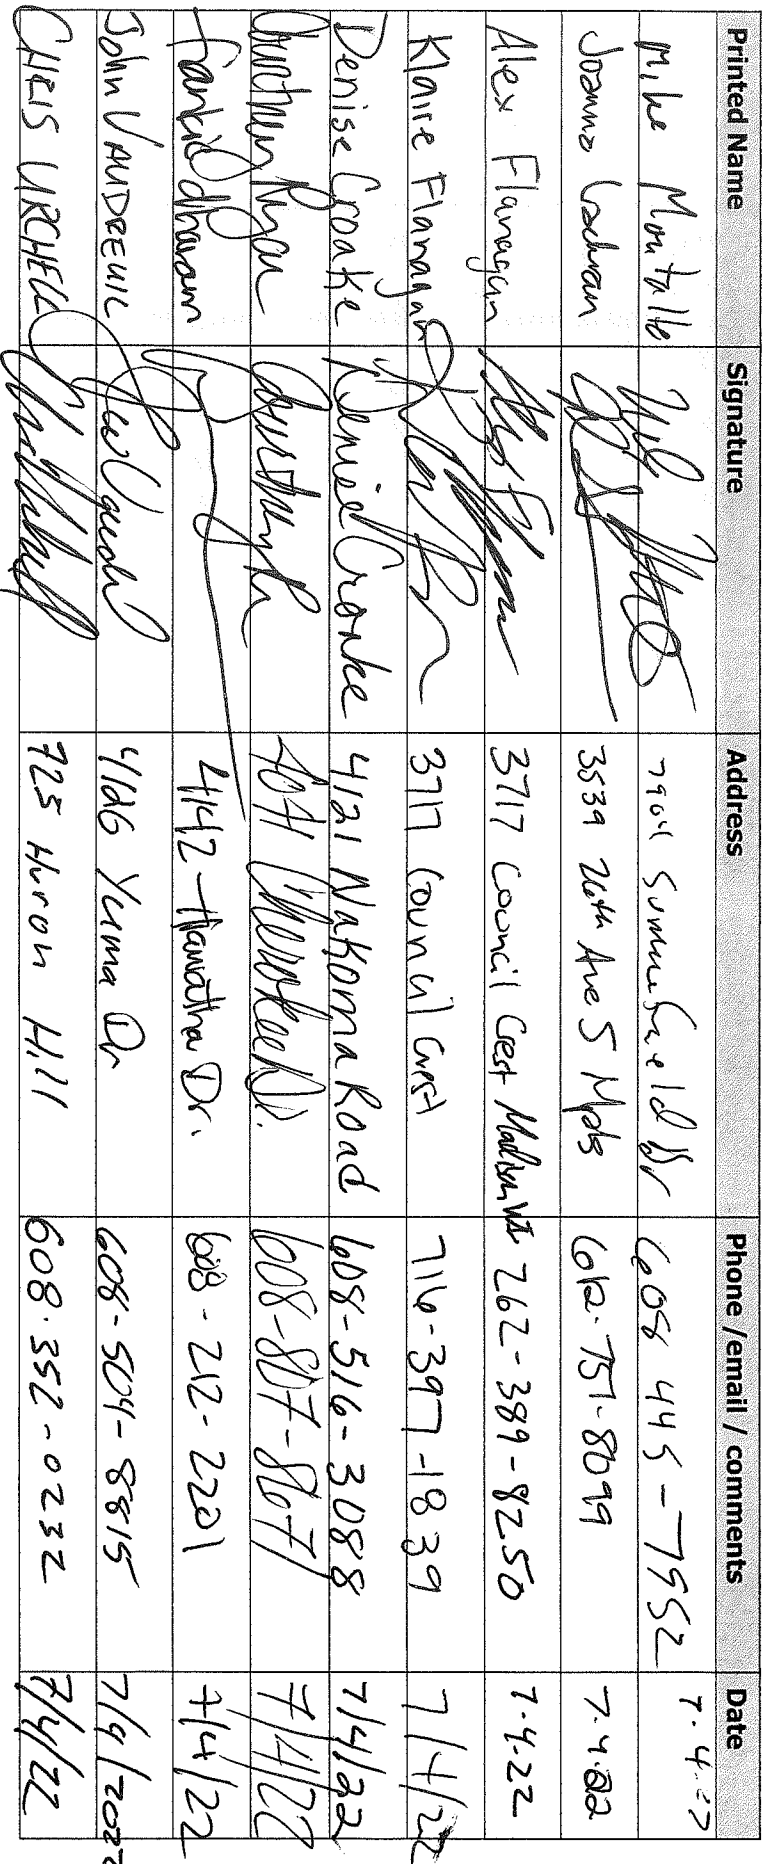 Printed Name Signature Address Phone /email / comments Date
Mike 7904 Dr 608 445-7552 7.4.22
Joanna Cochran 3539 26th Ave S Mpls 612-751-8099 7.4.22
Alex Flanagan 3717 Council Crest Madison WI 262-389-8250 7.4.22
Klaire Flanagan 3717 Council Crest 716-397-1839 7/4/22
Denise Croake Denise Croake 4121 Nakoma Road 608-516-3088 7/4/22
Cherokee Dr. 608-807-8671 7/4/22
4142 Hiawatha Dr. 608-212-2201 7/4/22
John VAUDREUIL Yuma Dr 608-504-8815 7/4/2022
CHRIS URCHELL 725 Huron Hill 608.352-0232 7/4/22